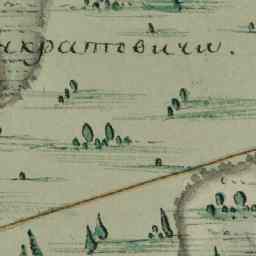 нкратовичи.